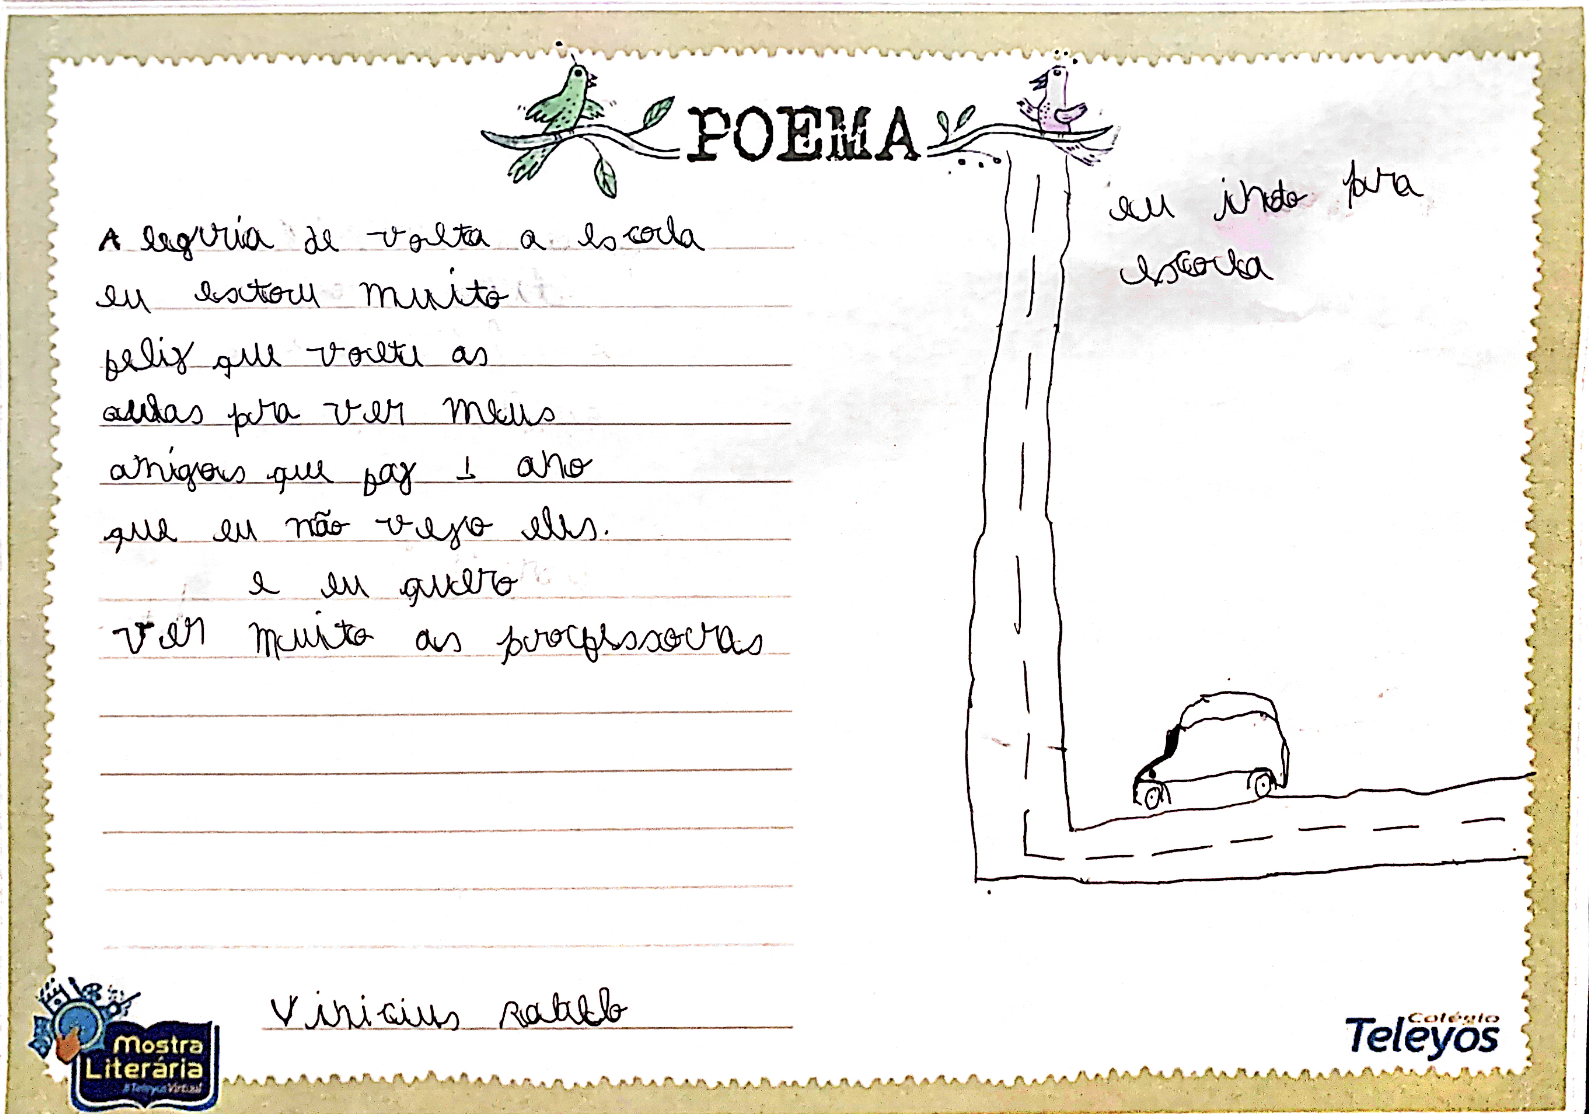 POEMA
A legria de volta a escola
eu estou muito
feliz que volte as
aulas pra ver meus
amigos que faz 1 ano
que eu não vejo eles.
e eu quero
ver muito as professoras
Vinicius
eu indo pra
escola
Mostra
Literária
#TeleyosVirtual
Colégio
Teleyos